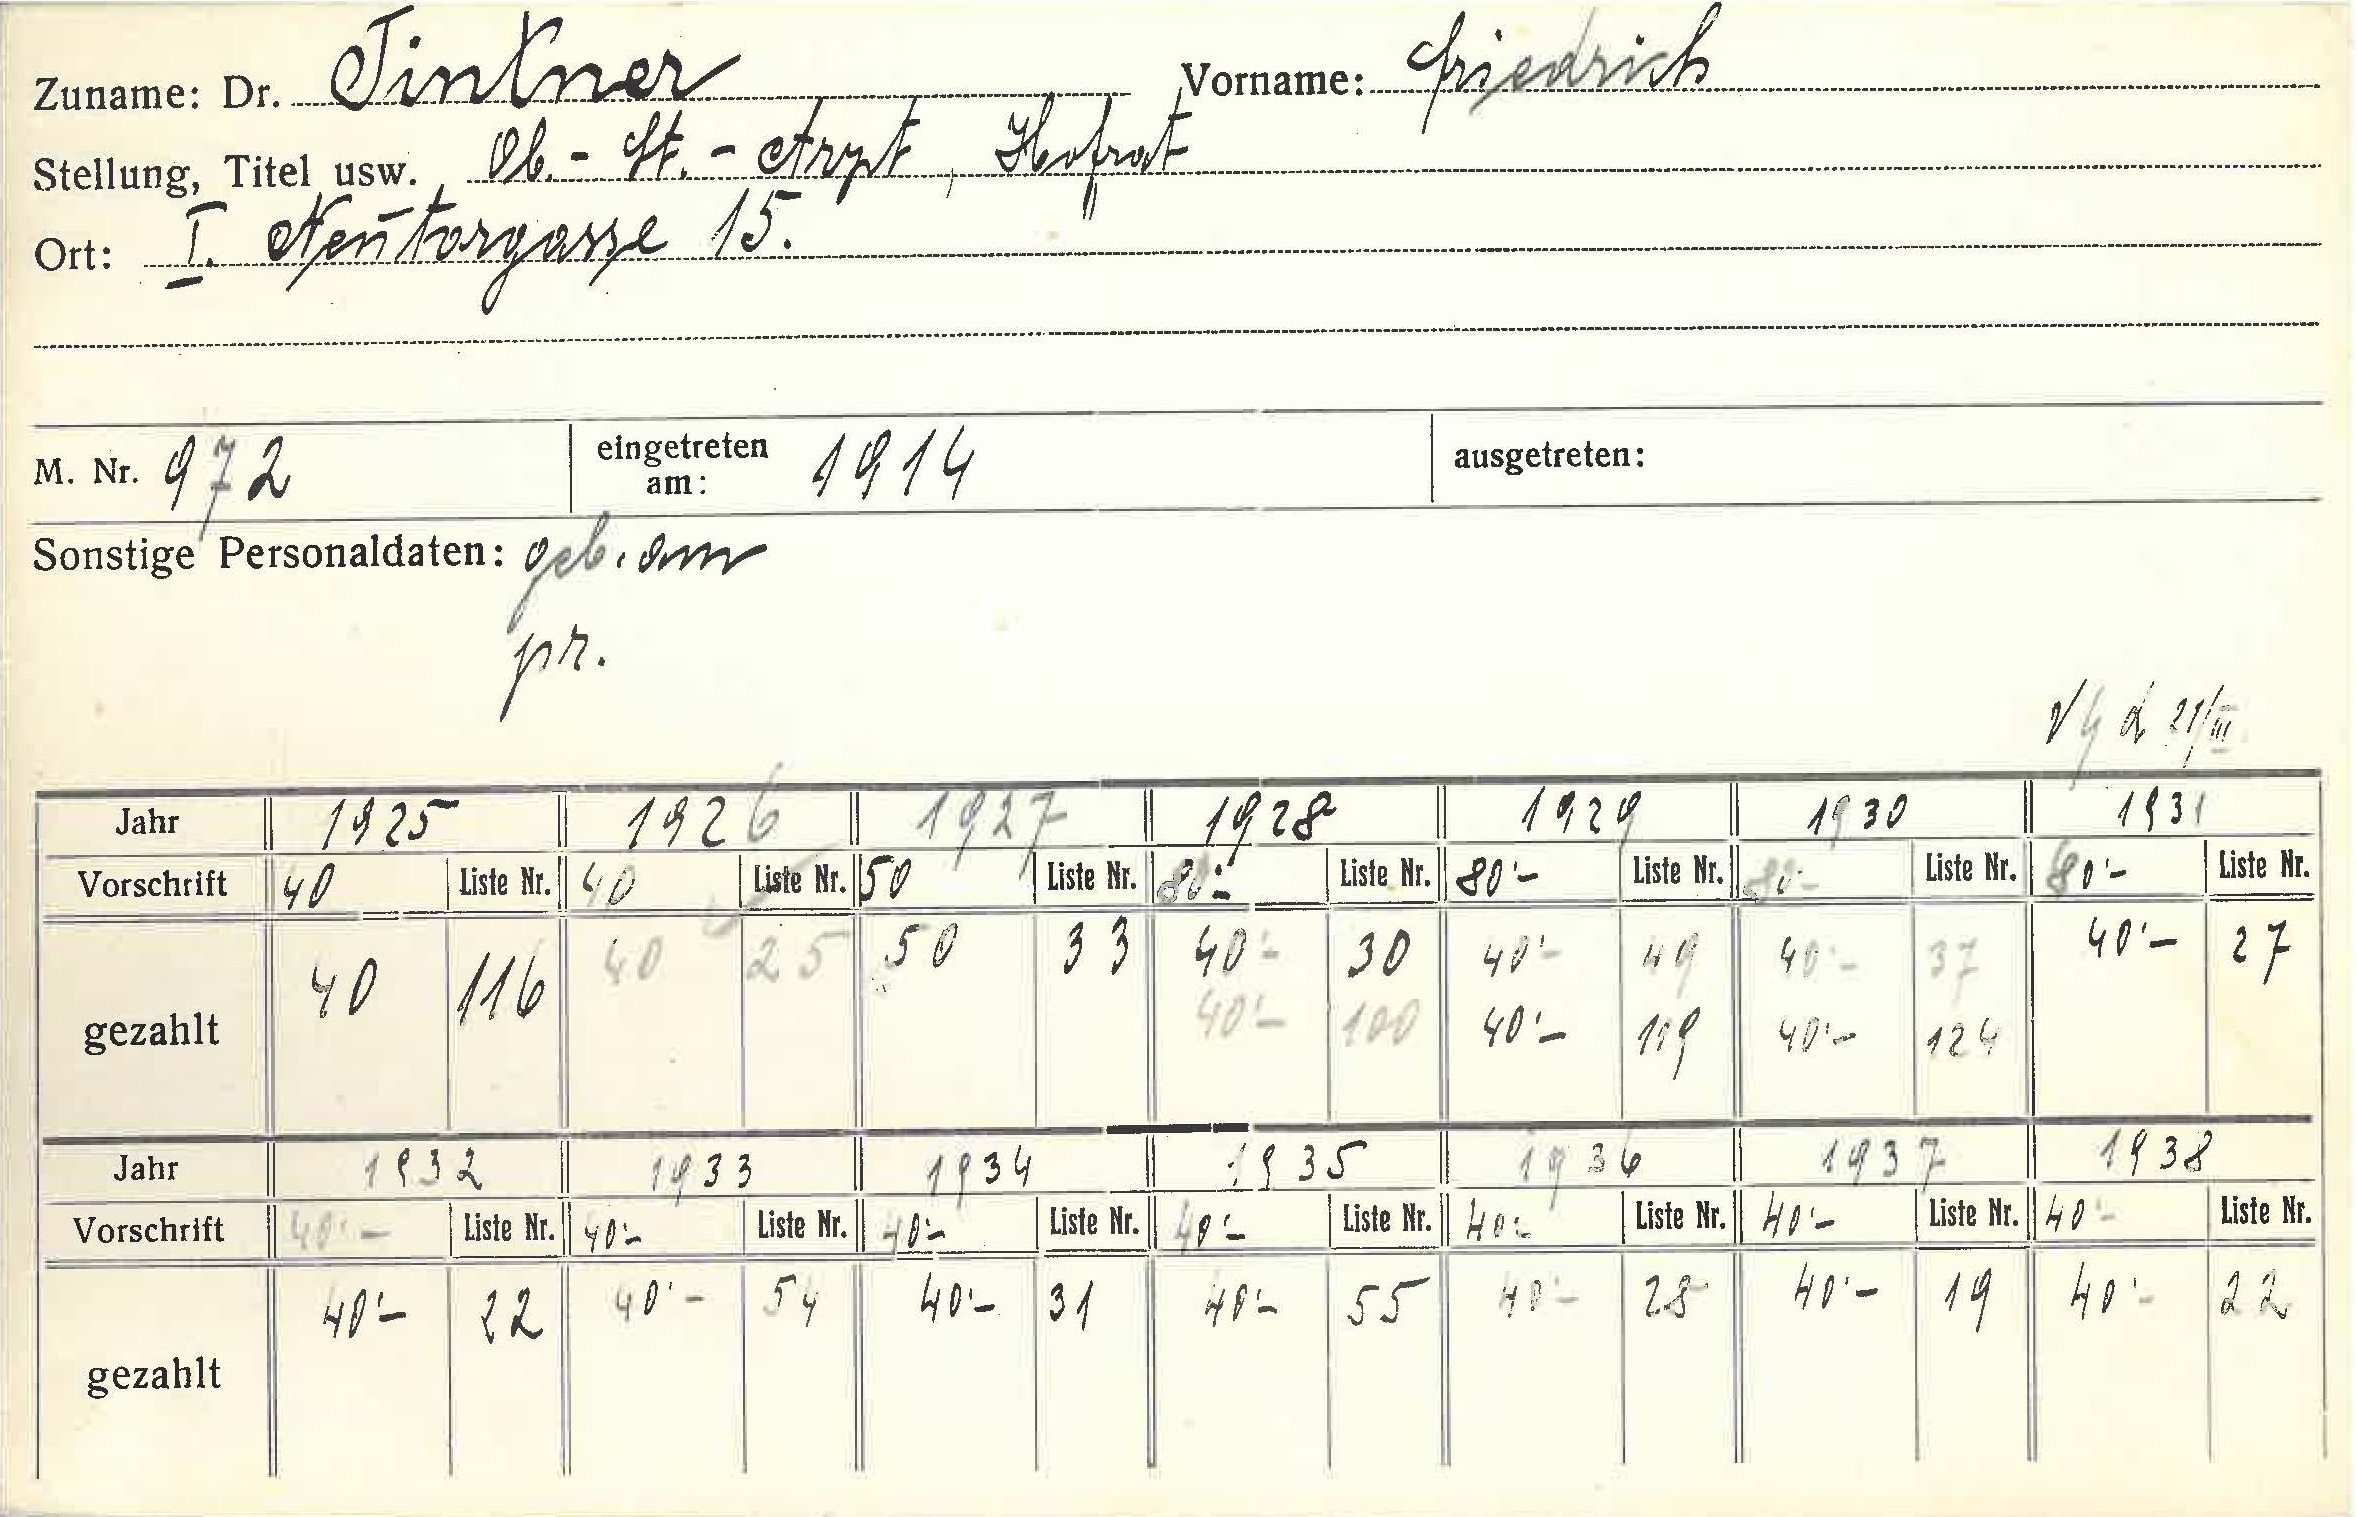 Zuname: Dr. Tintner Vorname: Friedrich
Stellung, Titel usw. Ob.-St.-Arzt, Hofrat
Ort: I. Neutorgasse 15.
M. Nr. 972 eingetreten am: 1914 ausgetreten:
Sonstige Personaldaten: geb. am
pr.
21/III
Jahr 1925 1926 1927 1928 1929 1930 1931
Vorschrift 40 Liste Nr. 40 Liste Nr. 50 Liste Nr. 80'- Liste Nr. 80'- Liste Nr. 80'- Liste Nr. 80'- Liste Nr.
gezahlt 40 116 40 25 50 33 40'- 30 40'- 49 40'- 37 40'- 27
40'- 100 40'- 119 40'- 124
Jahr 1932 1933 1934 1935 1936 1937 1938
Vorschrift 40'- Liste Nr. 40'- Liste Nr. 40'- Liste Nr. 40'- Liste Nr. 40'- Liste Nr. 40'- Liste Nr. 40'- Liste Nr.
gezahlt 40'- 22 40'- 54 40'- 31 40'- 55 40'- 28 40'- 19 40'- 22